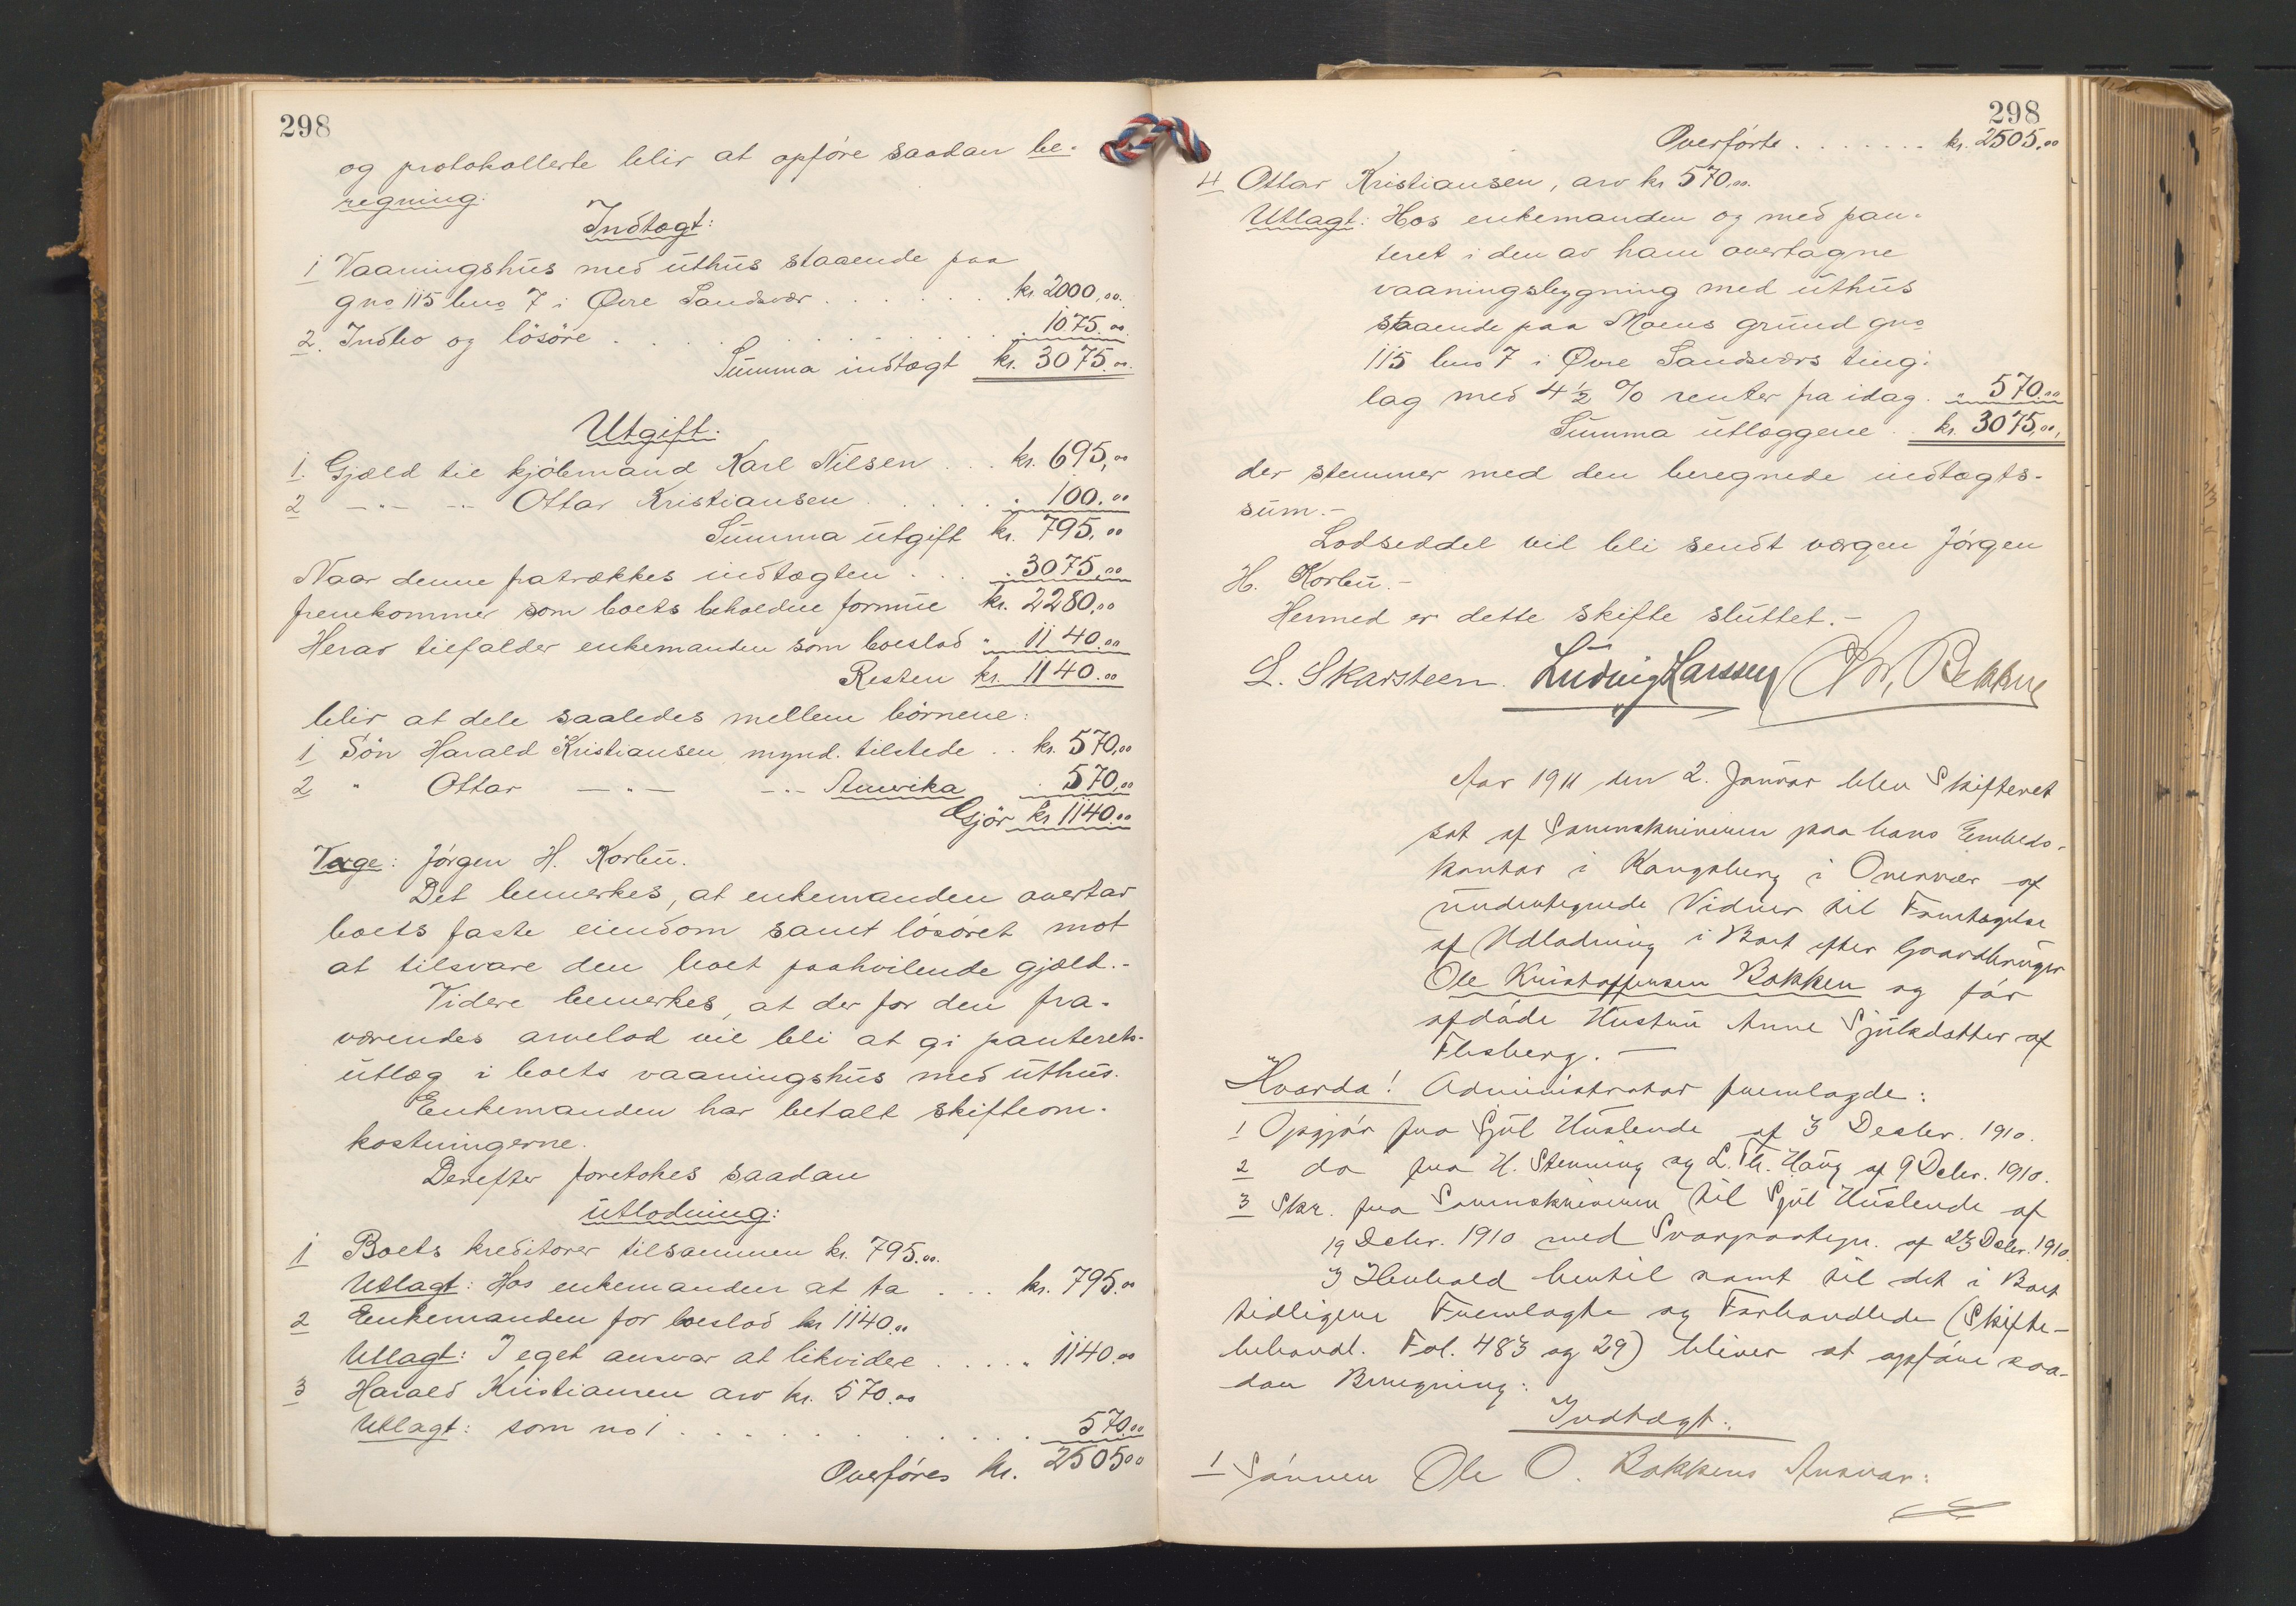 298
og protokollerte blir at opføre saadan be-
regning:
Indtægt:
1 Vaaningshus med uthus staaende paa
gno 115 bno 7 i Øvre Sandsvær . . . . . . kr. 2000,00.
2. Indbo og løsøre . . . . . . . . . . . . " 1075.00
Summa indtægt kr. 3075.00.
Utgift:
1. Gjæld til kjøbmand Karl Nilsen . . . kr. 695,00
2 -"- -"- Ottar Kristiansen . . . . . " 100.00
Summa utgift kr. 795,00
Naar denne fratrækkes indtægten . . . " 3075,00
fremkommer som boets beholdne formue kr. 2280,00
Herav tilfalder enkemanden som boeslod " 1140.00
Resten kr. 1140.00
blir at dele saaledes mellem børnene:
1 Søn Harald Kristiansen, mynd. tilstede . . kr. 570,00
2 " Ottar -"- -"- Amerika . 570,00
Gjør kr 1140.00
Verge: Jørgen H. Korbu.
Det bemerkes, at enkemanden overtar
boets faste eiendom samt løsøret mot
at tilsvare den boet paahvilende gjæld.-
Videre bemerkes, at der for den fra-
værendes arvelod vil bli at gi panterets-
utlæg i boets vaaningshus med uthus.
Enkemanden har betalt skifteom-
kostningerne.
Derefter foretokes saadan
utlodning:
1 Boets kreditorer tilsammen kr. 795.00.
Utlagt: Hos enkemanden at ta . . . kr. 795.00
2 Enkemanden for boeslod kr 1140.00
Utlagt: I eget ansvar at likvidere . . . . . " 1140.00
3 Harald Kristiansen arv kr. 570.00
Utlagt: som no 1 . . . . . . . . . . . . 570.00
Overføres kr. 2505.00
298
Overførte . . . . . . . kr. 2505.00
4 Ottar Kristiansen, arv kr 570,00.
Utlagt: Hos enkemanden og med pan-
teret i den av ham overtagne
vaaningsbygning med uthus
staaende paa Moens grund gno
115 bno 7 i Øvre Sandsværs ting-
lag med 4 ½ % renter fra idag . " 570.00
Summa utlæggene . . kr. 3075,00,
der stemmer med den beregnede indtægts-
sum.-
Lodseddel vil bli sendt vergen Jørgen
H. Korbu.-
Hermed er dette skifte sluttet.-
L. Skarsteen. Ludvig Larssen Chr. Bekkne
Aar 1911 den 2. Januar blev Skifteret
sat af Sorenskriveren paa hans Embeds-
kontor i Kongsberg i Overvær af
undertegnede Vidner til Foretagelse
af Udlodning i Boet efter Gaardbruger
Ole Kristoffersen Bakken og før
afdøde Hustru Anne Sjulsdatter af
Flesberg. -
Hvorda! Administrator fremlagde:
1 Opgjør fra Sjul Huslende af 3 Decbr. 1910.
2 do fra H. Stenning og L. Th. Haug af 9 Decbr. 1910.
3 Skr. fra Sorenskriveren til Sjul Huslende af
19 Decbr. 1910 med Svarpaategn. af 23 Decbr. 1910.
I Henhold hertil samt til det i Boet
tidligere Fremlagte og Forhandlede (Skifte-
behandl. Fol. 483 og 29) bliver at opføre saa-
dan Beregning:
Indtægt:
1 Sønnen Ole O. Bakkens Ansvar: